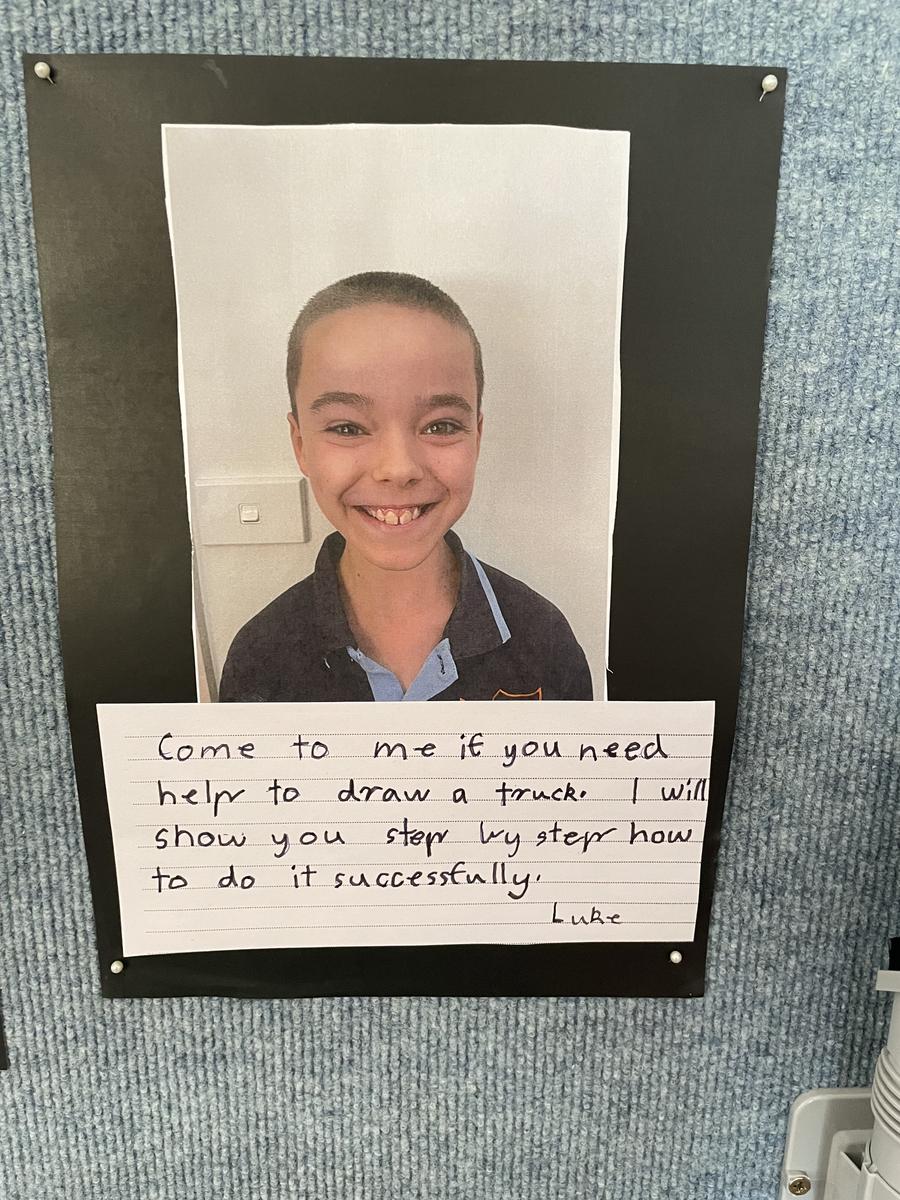 Come to me if you need
help to draw a truck. I will
show you step by step how
to do it successfully.
Luke